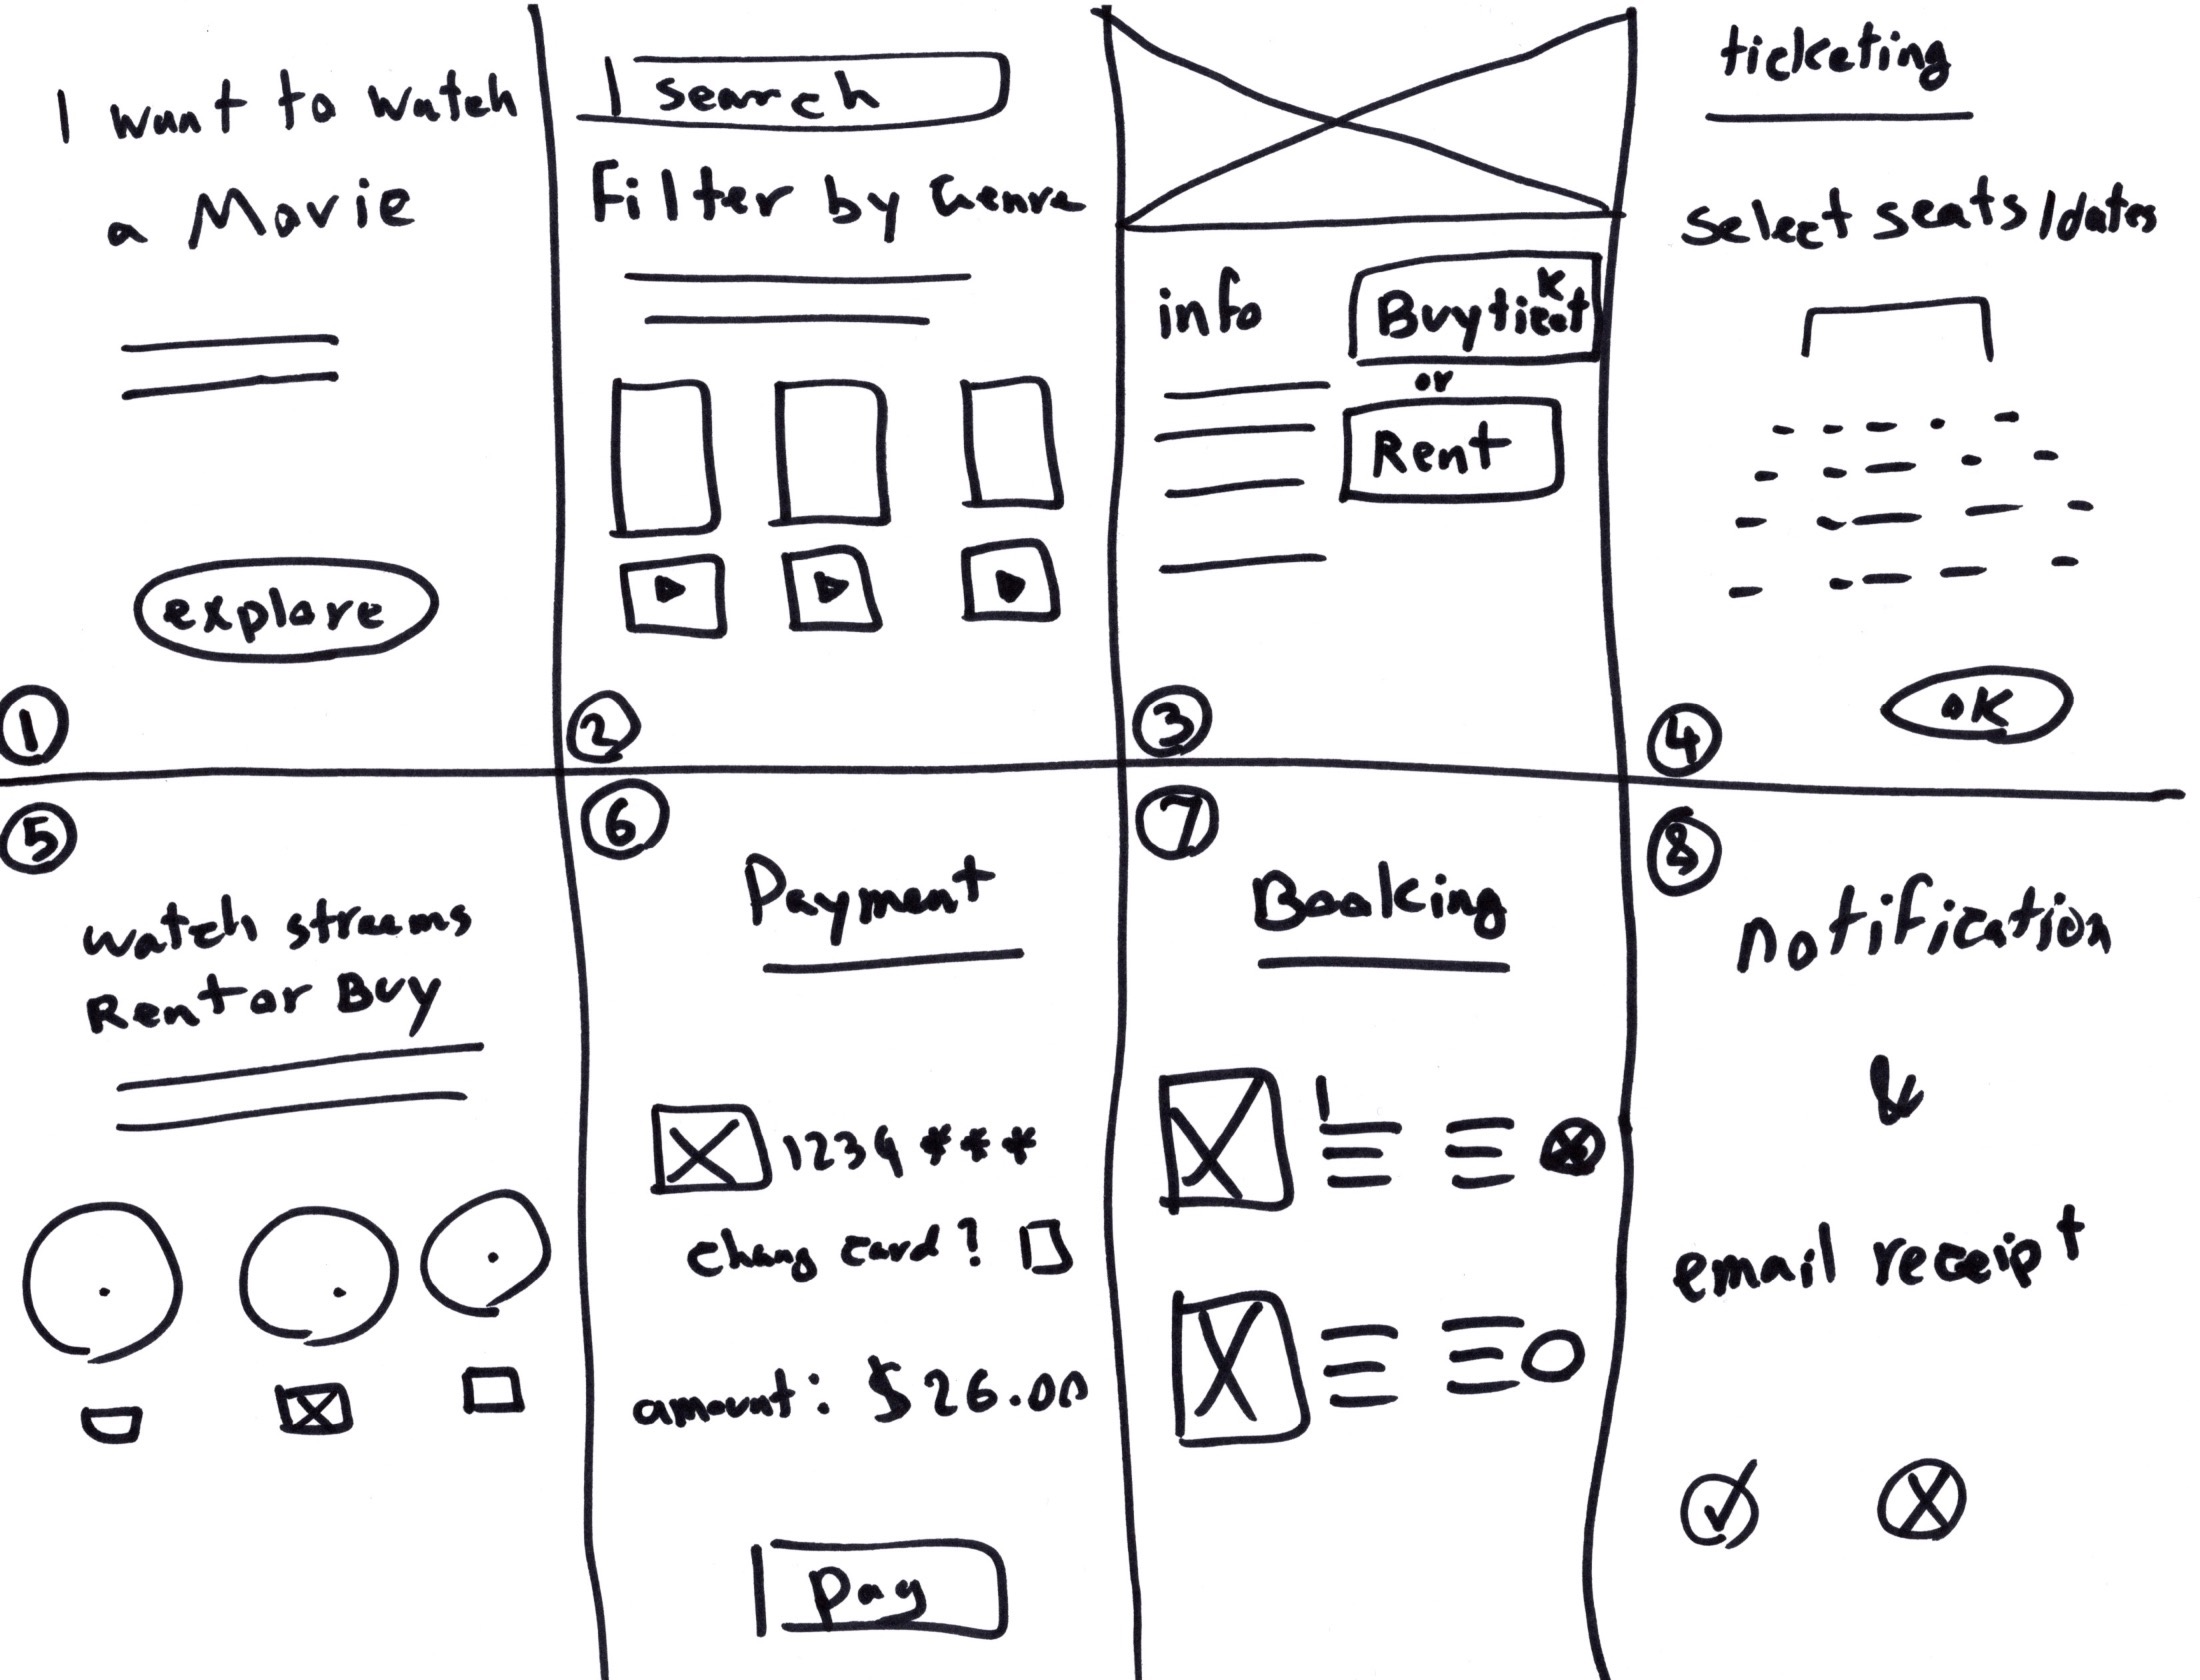 I want to watch
a Movie
explore
1
search
Filter by Genre
2
info
Buy ticket
or
Rent
3
ticketing
select seats/dates
OK
4
5
watch streams
Rent or Buy
6
Payment
1234 * * *
chang card?
amount: $26.00
Pay
7
Booking
8
notification
&
email receipt